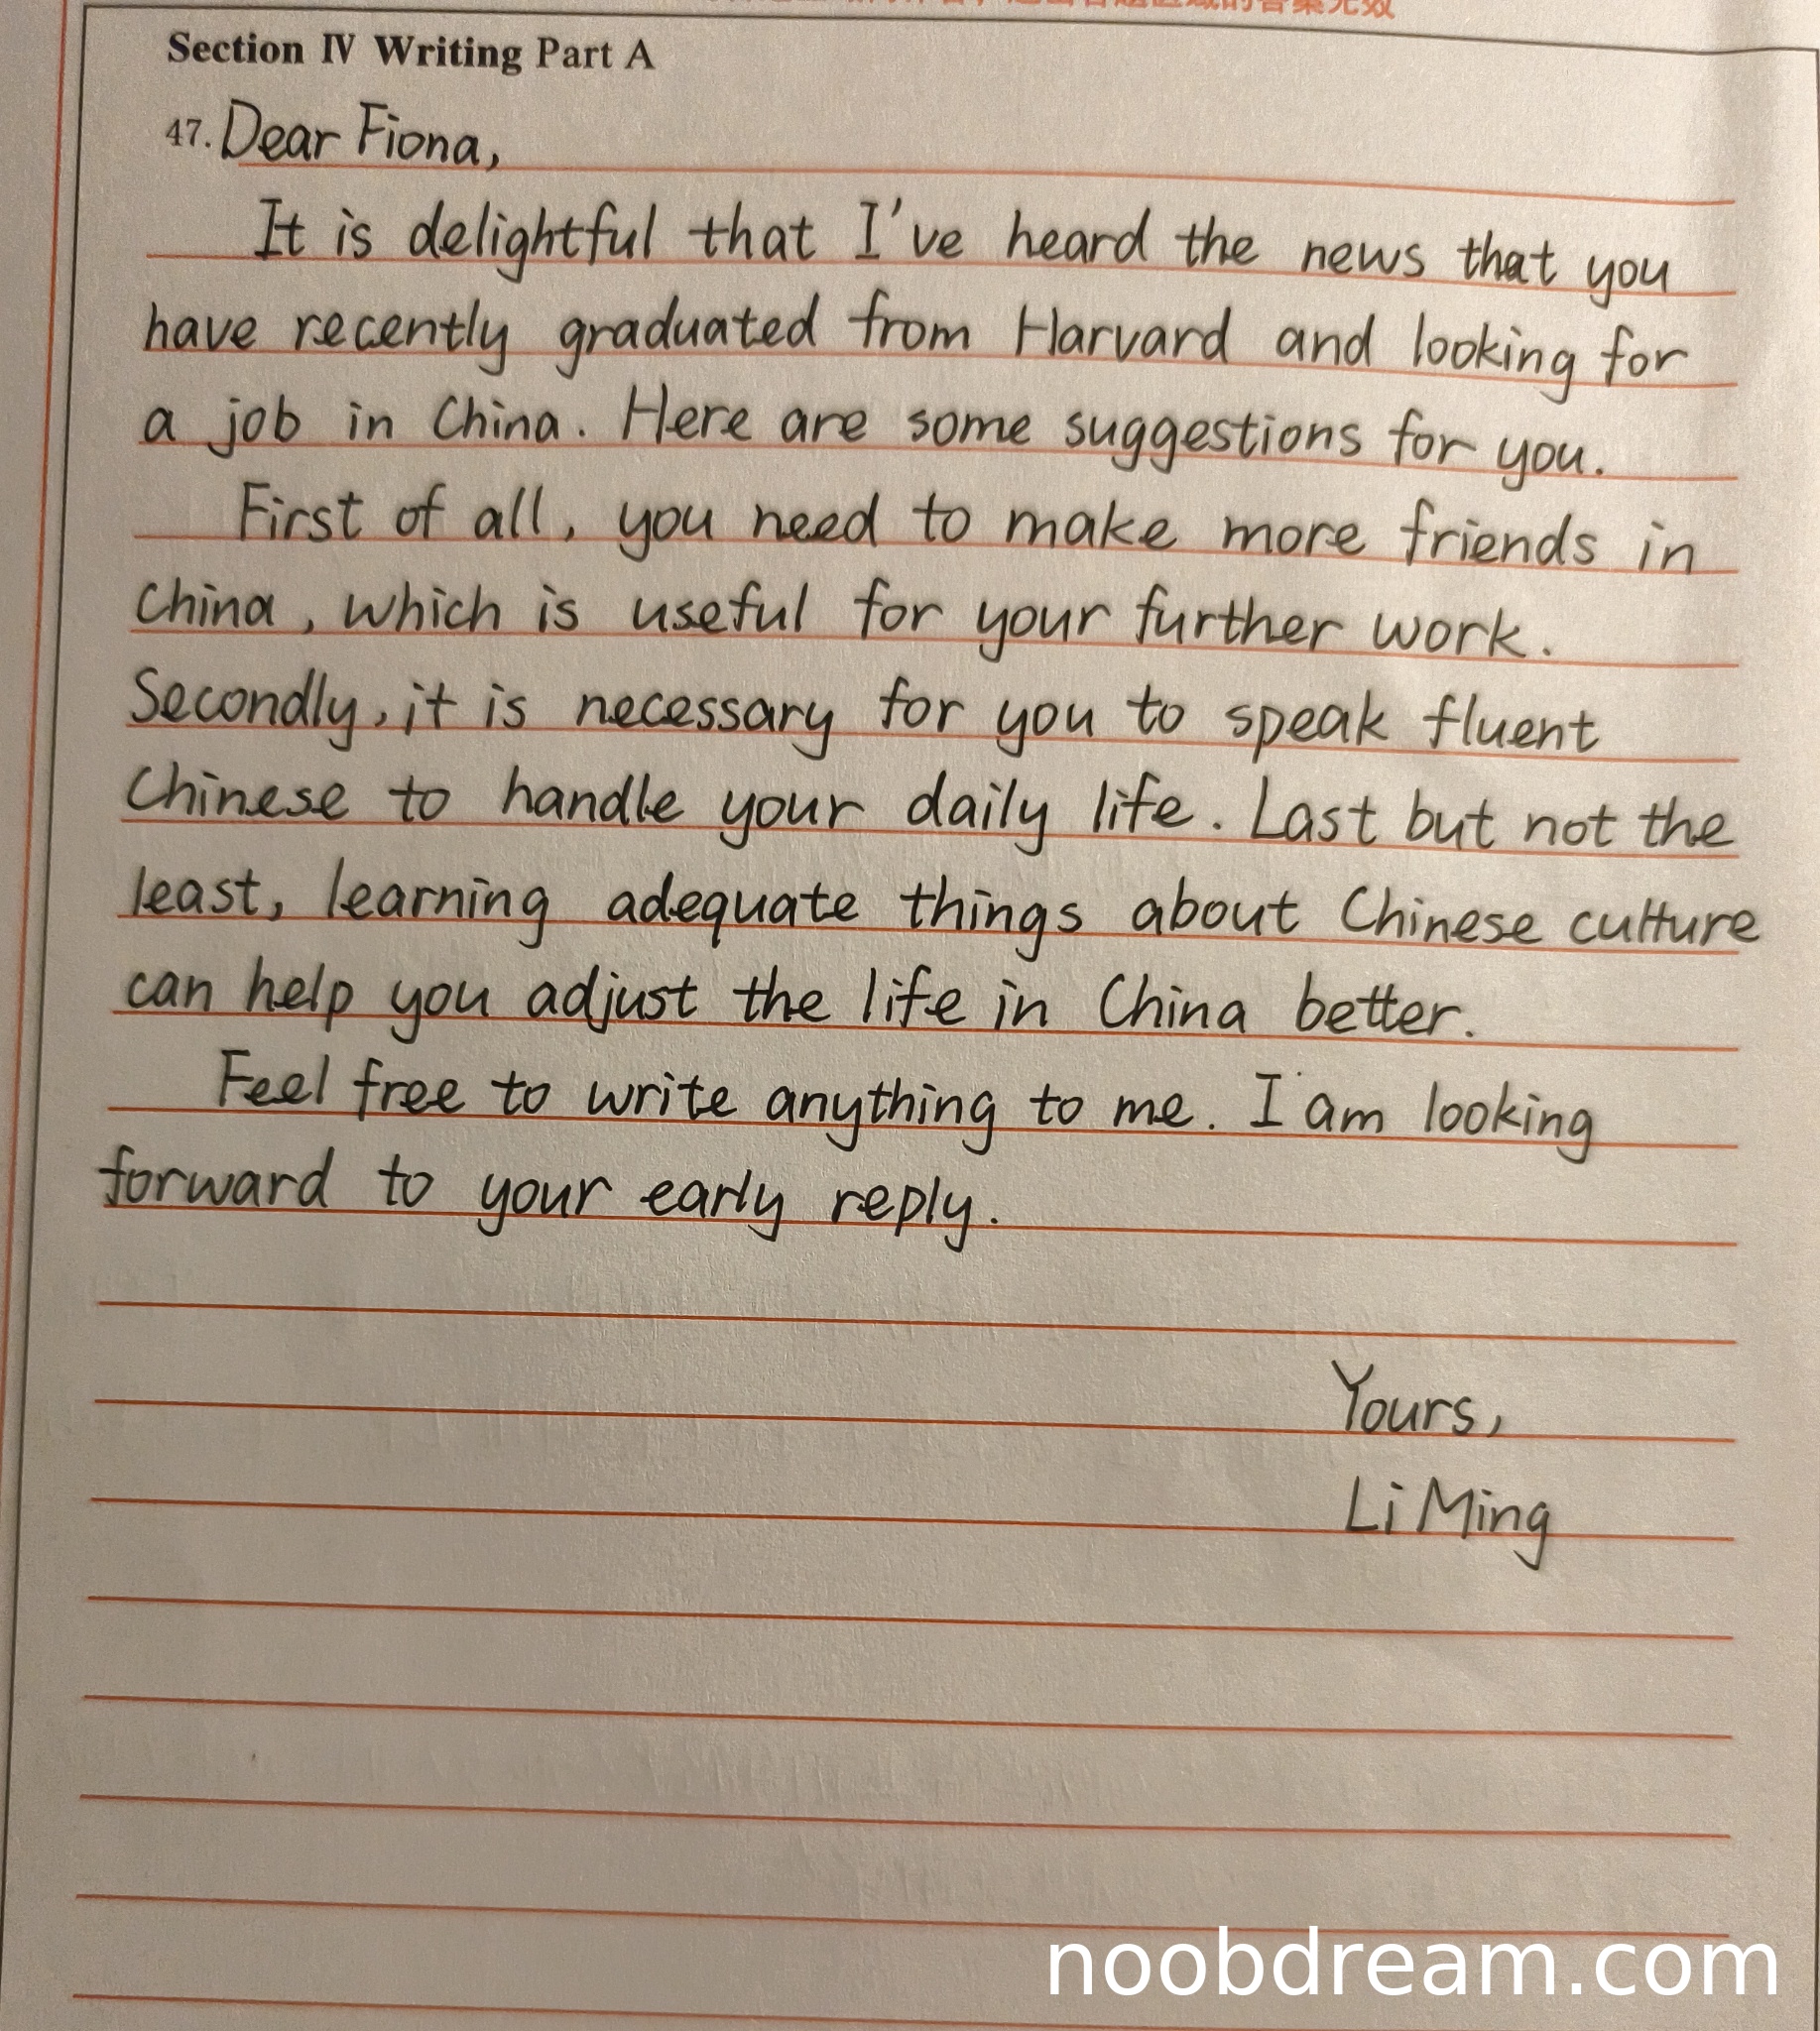 Section IV Writing Part A
47. Dear Fiona,
It is delightful that I've heard the news that you
have recently graduated from Harvard and looking for
a job in China. Here are some suggestions for you.
First of all, you need to make more friends in
China, which is useful for your further work.
Secondly, it is necessary for you to speak fluent
Chinese to handle your daily life. Last but not the
least, learning adequate things about Chinese culture
can help you adjust the life in China better.
Feel free to write anything to me. I am looking
forward to your early reply.
Yours,
Li Ming
noobdream.com